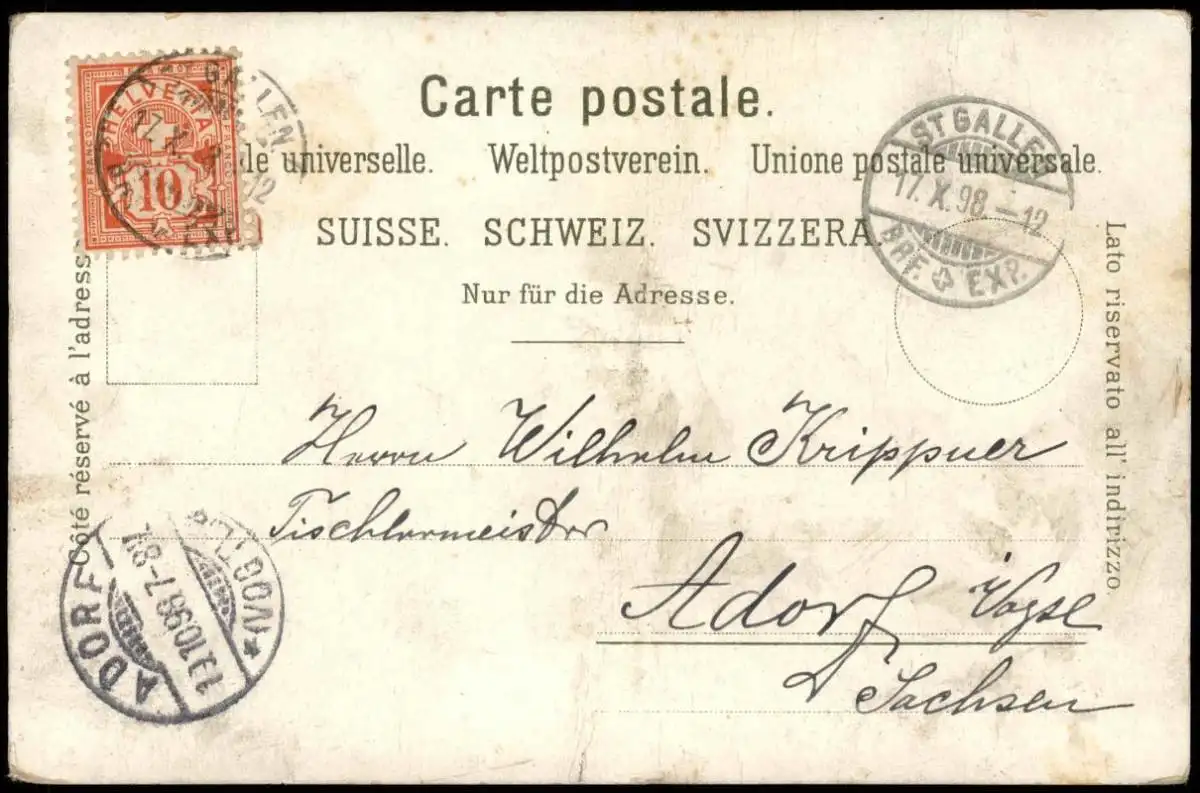 Carte postale.
le universelle. Weltpostverein. Unione postale universale.
SUISSE. SCHWEIZ. SVIZZERA.
Nur für die Adresse.
Côté réservé à l'adresse
Lato riservato all' indirizzo.
HELVETIA
FRANCO
FRANCO
10
GALLEN
17. X.
12
EXP.
ST GALLEN
17. X. 98 –12
BRF. EXP.
Herrn Wilhelm Krippner
Tischlermeister
Adorf Vogtl
Sachsen
ADORF
VOGTL
98 7-8